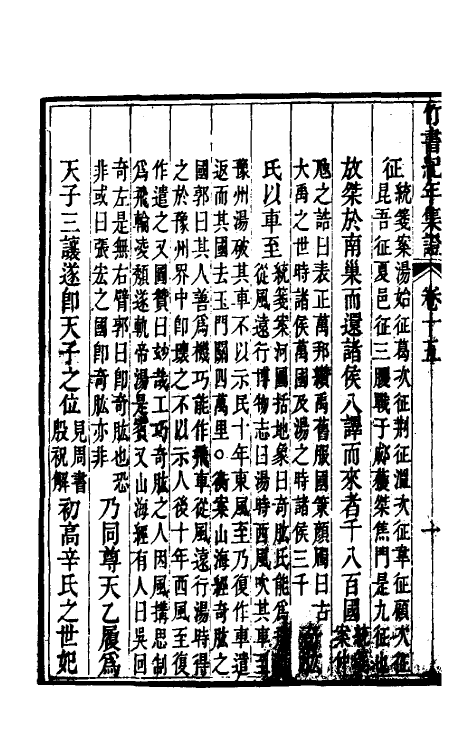 竹書紀年集證 卷十五 十
征
統箋案湯始征葛次征荆征温次征韋征顧次征
昆吾征夏邑征三朡戰于郕獲桀焦門是九征也
放桀於南巢而還諸侯八譯而來者千八百國
統箋
案仲
虺之誥曰表正萬邦纘禹舊服國策顏斶曰古
大禹之世時諸侯萬國及湯之時諸侯三千
氏以車至
統箋案河圖括地象曰奇肱氏能爲
從風遠行博物志曰湯時西風吹其車至
豫州湯破其車不以示民十年東風至乃復作車遣
返而其國去玉門關四萬里○衡案山海經奇肱之
國郭曰其人善爲機巧能作飛車從風遠行湯時得
之於豫州界中即壞之不以示人後十年西風至復
作遣之又圖贊曰妙哉工巧奇肱之人因風搆思制
爲飛輪凌頹遂軌帝湯是賓又山海經有人曰吳回
奇左是無右臂郭曰即奇肱也恐
非或曰張宏之國即奇肱亦非
乃同尊天乙履爲
天子三讓遂即天子之位
見周書
殷祝解
初高辛氏之世妃